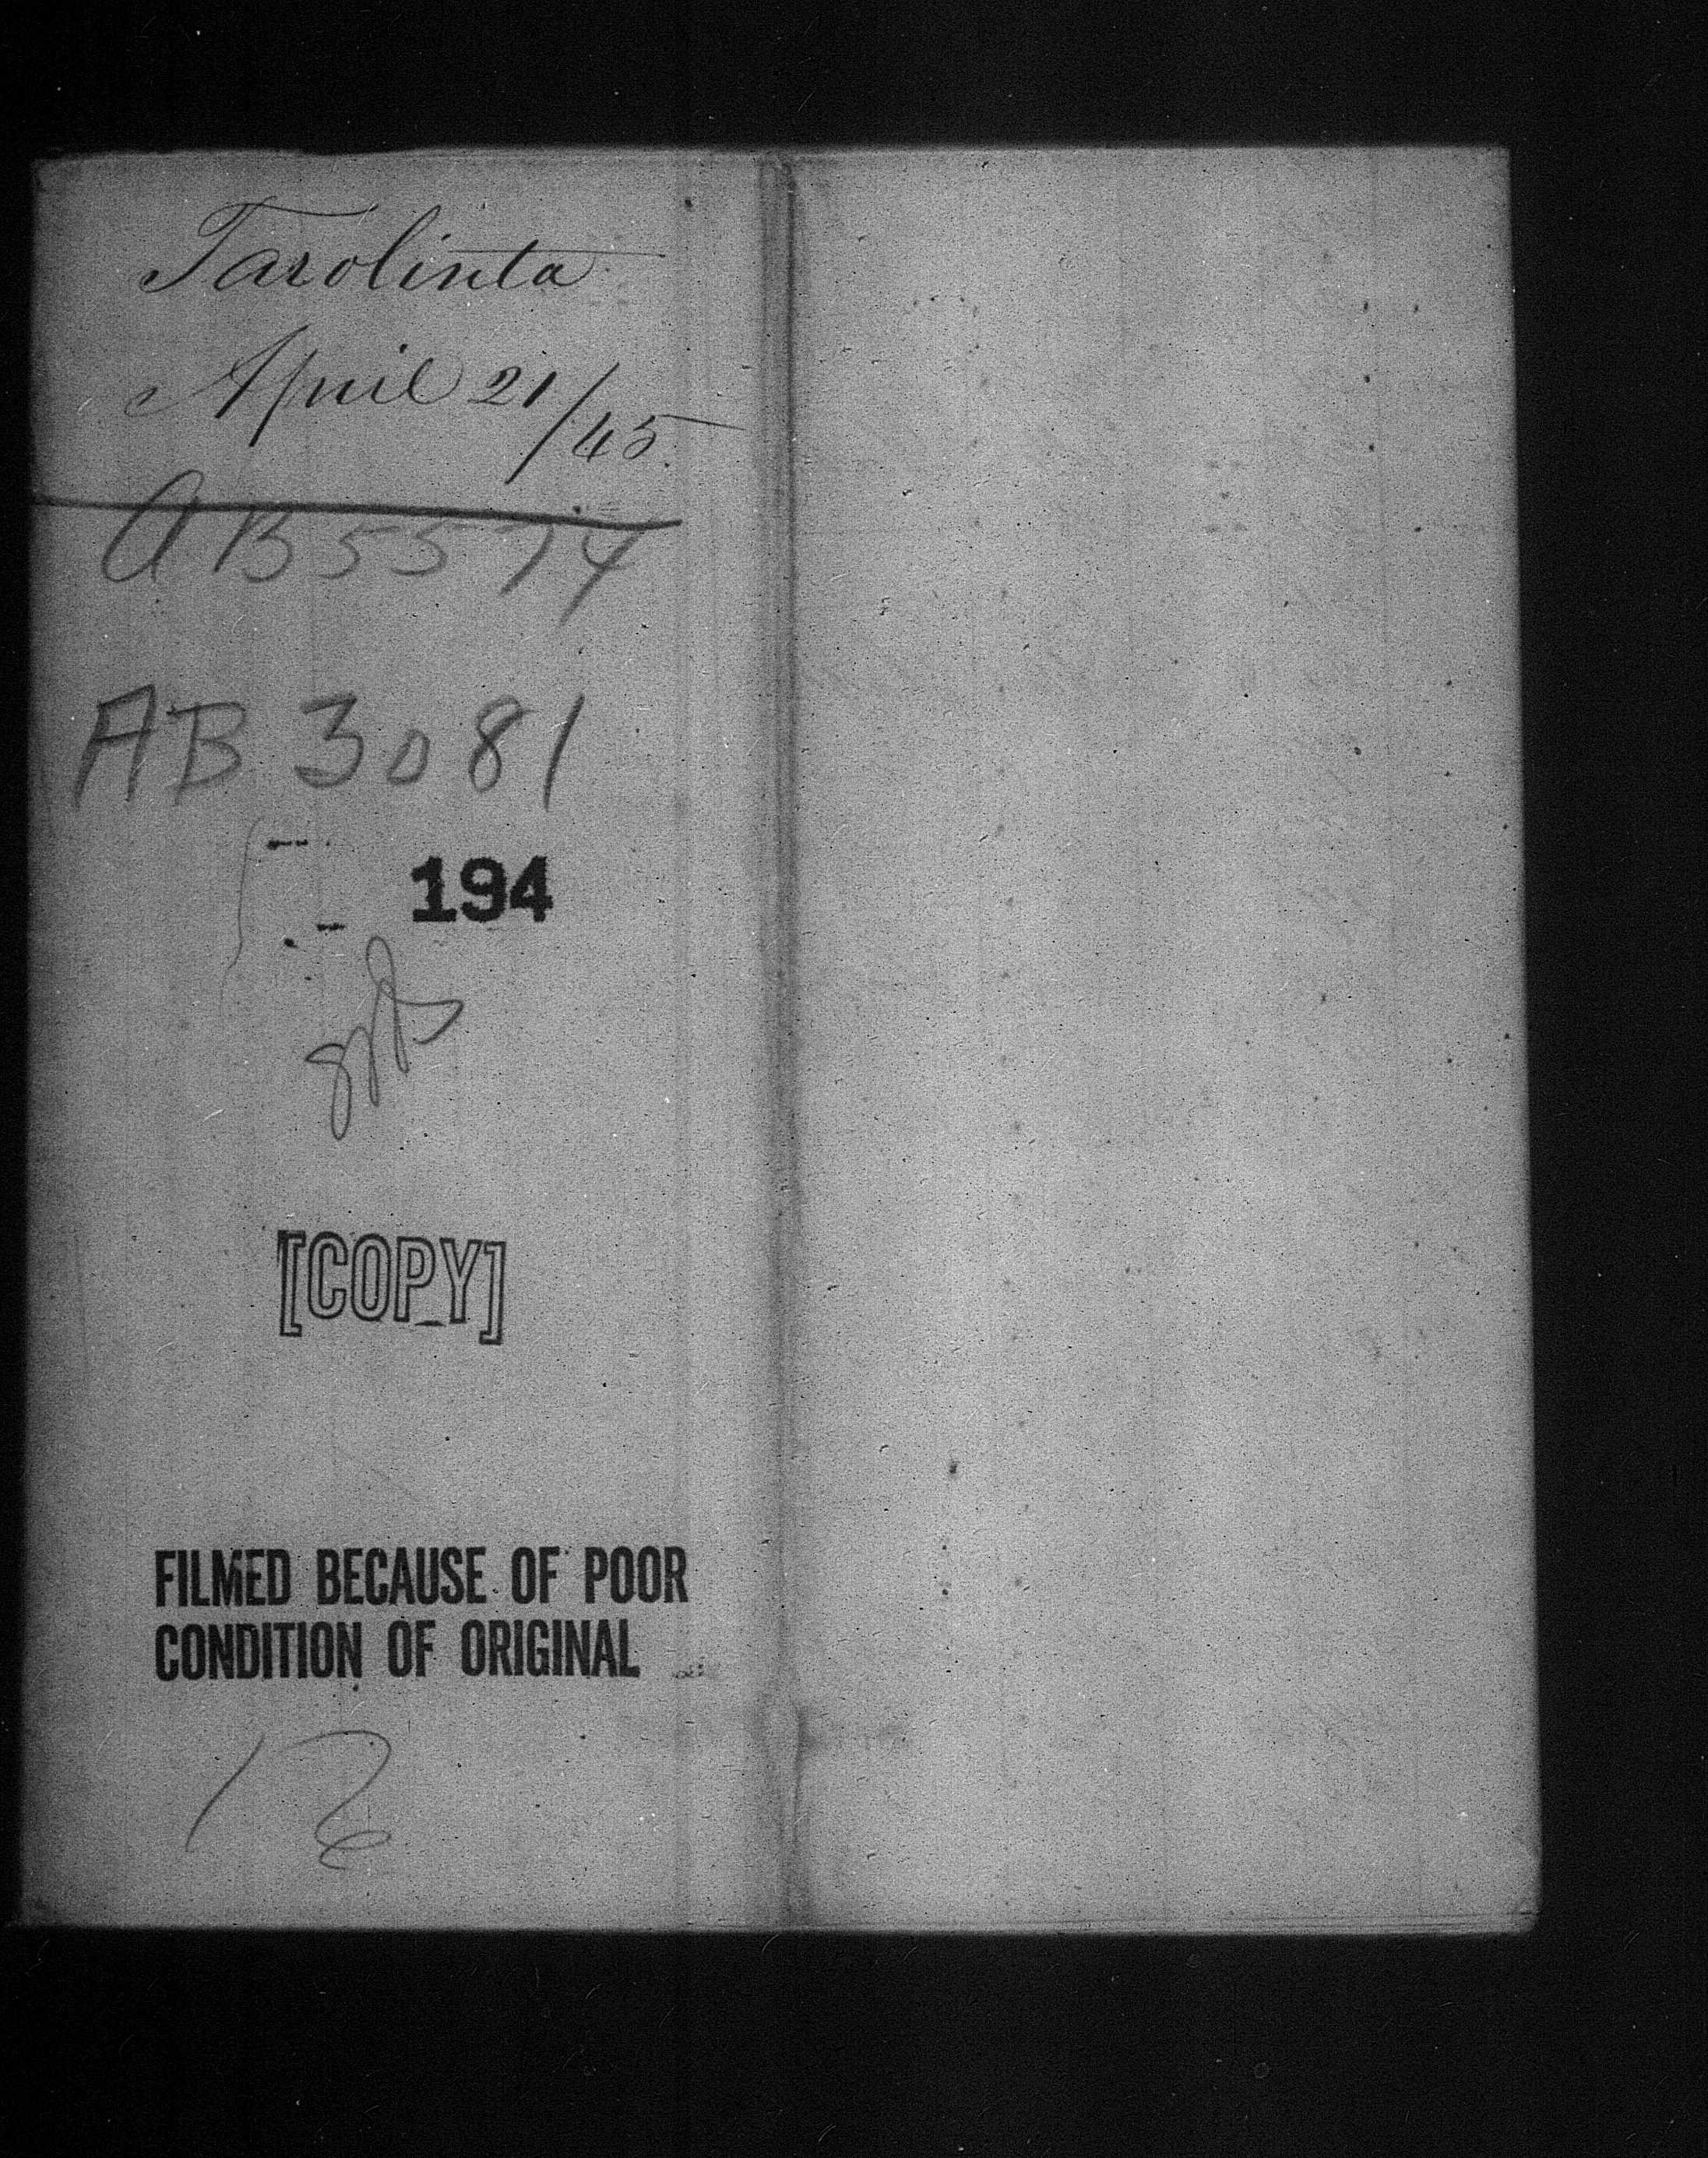 Tarolinta
April 21/45.
AB 5574
AB 3081
194
[COPY]
FILMED BECAUSE OF POOR
CONDITION OF ORIGINAL